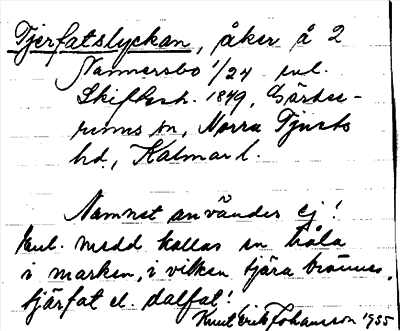 Tjerfatslyckan, åker å 2
Nannersbo 1/24 enl.
Skifteh. 1849, Gärdse-
rums sn, Norra Tjusts
hd, Kalmar l.
Namnet användes ej!
Enl. medd kallas en håla
i marken, i vilken tjära brännes,
tjärfat el. dalfat!
Knut Erik Johansson 1955